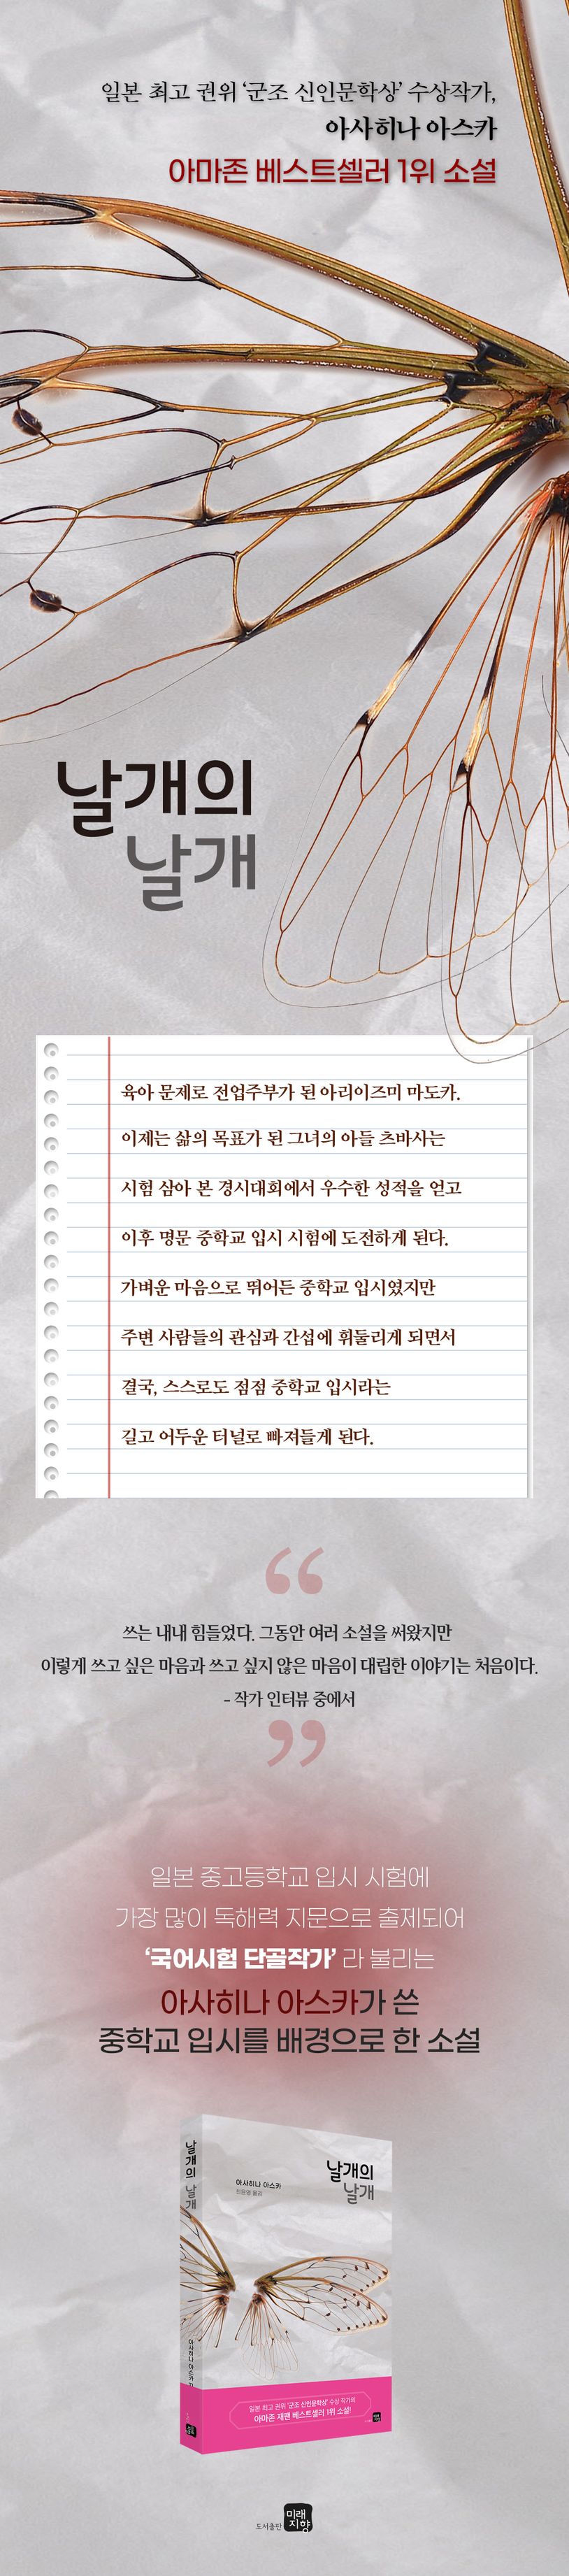 일본 최고 권위 ‘군조 신인문학상’ 수상작가,
아사히나 아스카
아마존 베스트셀러 1위 소설
날개의
날개
육아 문제로 전업주부가 된 아리이즈미 마도카.
이제는 삶의 목표가 된 그녀의 아들 츠바사는
시험 삼아 본 경시대회에서 우수한 성적을 얻고
이후 명문 중학교 입시 시험에 도전하게 된다.
가벼운 마음으로 뛰어든 중학교 입시였지만
주변 사람들의 관심과 간섭에 휘둘리게 되면서
결국, 스스로도 점점 중학교 입시라는
길고 어두운 터널로 빠져들게 된다.
“
쓰는 내내 힘들었다. 그동안 여러 소설을 써왔지만
이렇게 쓰고 싶은 마음과 쓰고 싶지 않은 마음이 대립한 이야기는 처음이다.
- 작가 인터뷰 중에서
”
일본 중고등학교 입시 시험에
가장 많이 독해력 지문으로 출제되어
‘국어시험 단골작가’ 라 불리는
아사히나 아스카가 쓴
중학교 입시를 배경으로 한 소설
날개의 날개
아사히나 아스카
날개의
날개
아사히나 아스카
일본 최고 권위 ‘군조 신인문학상’ 수상 작가의
아마존 재팬 베스트셀러 1위 소설!
도서출판 미래지향